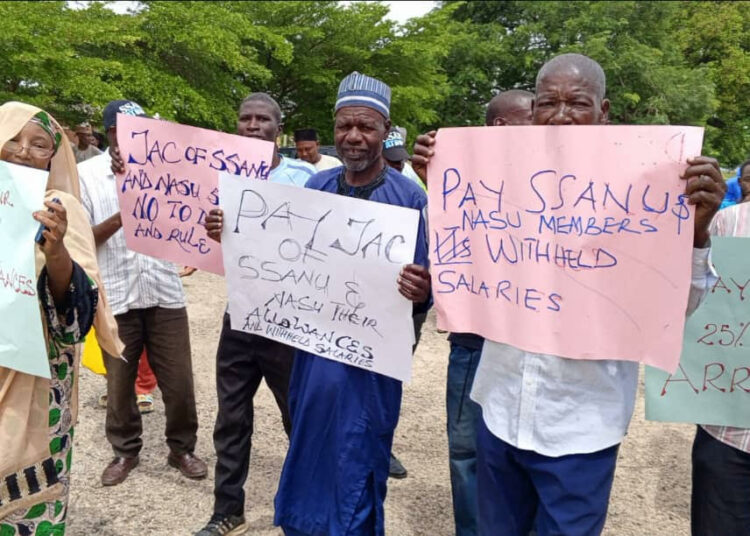 NR.
ANCES
JAC OF SSANU
AND NASU S
NO TO D
AND RULE
PAY JAC
OF
SSANU &
NASU THEIR
ALLOWANCES
AND WITHHELD SALARIES
PAY SSANU &
NASU MEMBERS
WITHHELD
SALARIES
AY
25%
ARR